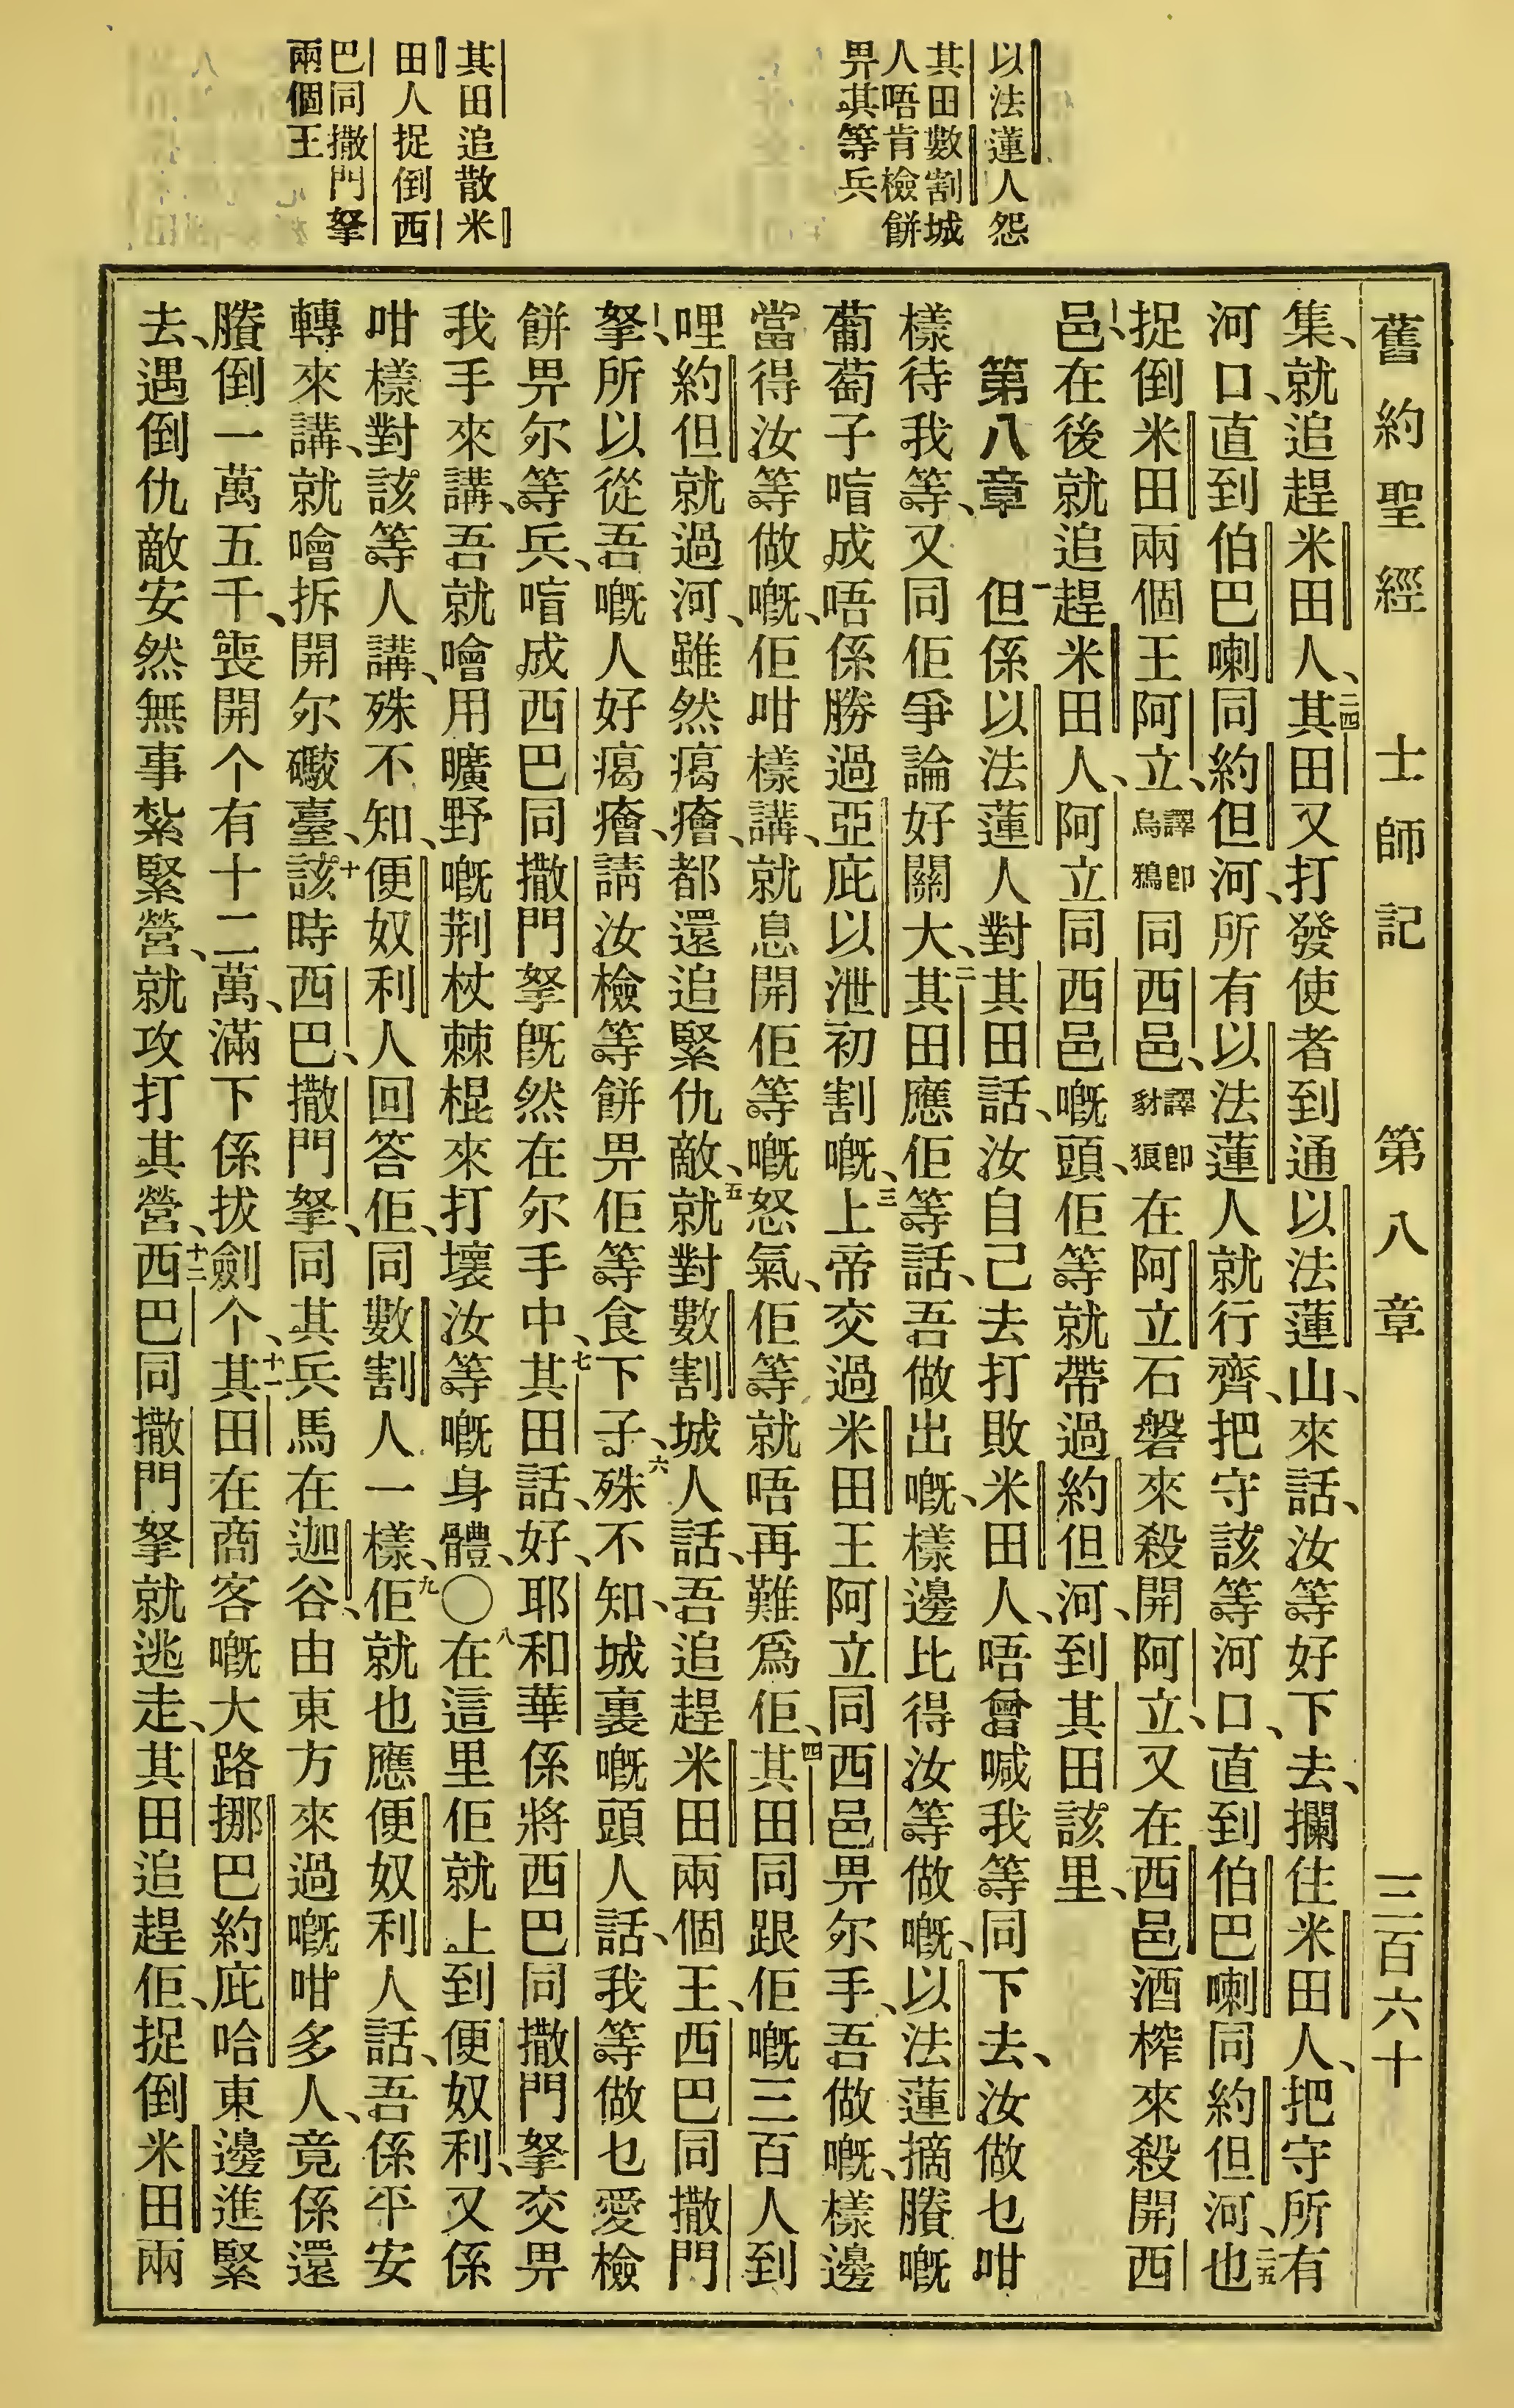 以法蓮人怨
其田數割城
人唔肯檢餅
畀其等兵
其田追散米
田人捉倒西
巴同撒門拏
兩個王
舊約聖經 士師記 第八章 三百六十
集、就追趕米田人、二四其田又打發使者到通以法蓮山、來話、汝等好下去、攔住米田人、把守所有
河口、直到伯巴喇同約但河、所有以法蓮人就行齊、把守該等河口、直到伯巴喇同約但河、二五也
捉倒米田兩個王阿立、譯即烏鴉同西邑、譯即豺狼在阿立石磐來殺開阿立、又在西邑酒榨來殺開西
邑、在後就追趕米田人、阿立同西邑嘅頭、佢等就帶過約但河、到其田該里、
第八章 一但係以法蓮人對其田話、汝自己去打敗米田人、唔曾喊我等同下去、汝做乜咁
樣待我等、又同佢爭論好關大、二其田應佢等話、吾做出嘅、樣邊比得汝等做嘅、以法蓮摘賸嘅
葡萄子唔成唔係勝過亞庇以泄初割嘅、三上帝交過米田王阿立同西邑畀尔手、吾做嘅、樣邊
當得汝等做嘅、佢咁樣講、就息開佢等嘅怒氣、佢等就唔再難爲佢、四其田同跟佢嘅三百人到
哩約但就過河、雖然癘癐、都還追緊仇敵、五就對數割城人話、吾追趕米田兩個王、西巴同撒門
拏、所以從吾嘅人好癘癐、請汝檢等餅畀佢等食下子、六殊不知、城裏嘅頭人話、我等做乜愛檢
餅畀尔等兵、唔成西巴同撒門拏旣然在尔手中、七其田話、好、耶和華係將西巴同撒門拏交畀
我手來講、吾就噲用曠野嘅荆杖棘棍來打壞汝等嘅身體、〇八在這里佢就上到便奴利、又係
咁樣對該等人講、殊不知、便奴利人回答佢、同數割人一樣、九佢就也應便奴利人話、吾係平安
轉來講、就噲拆開尔礮臺、十該時西巴、撒門拏、同其兵馬在迦谷、由東方來過嘅咁多人、竟係還
賸倒一萬五千、喪開个有十二萬、滿下係拔劍个、十一其田在商客嘅大路挪巴約庇哈東邊進緊
去、遇倒仇敵安然無事紮緊營、就攻打其營、十二西巴同撒門拏就逃走、其田追趕佢、捉倒米田兩